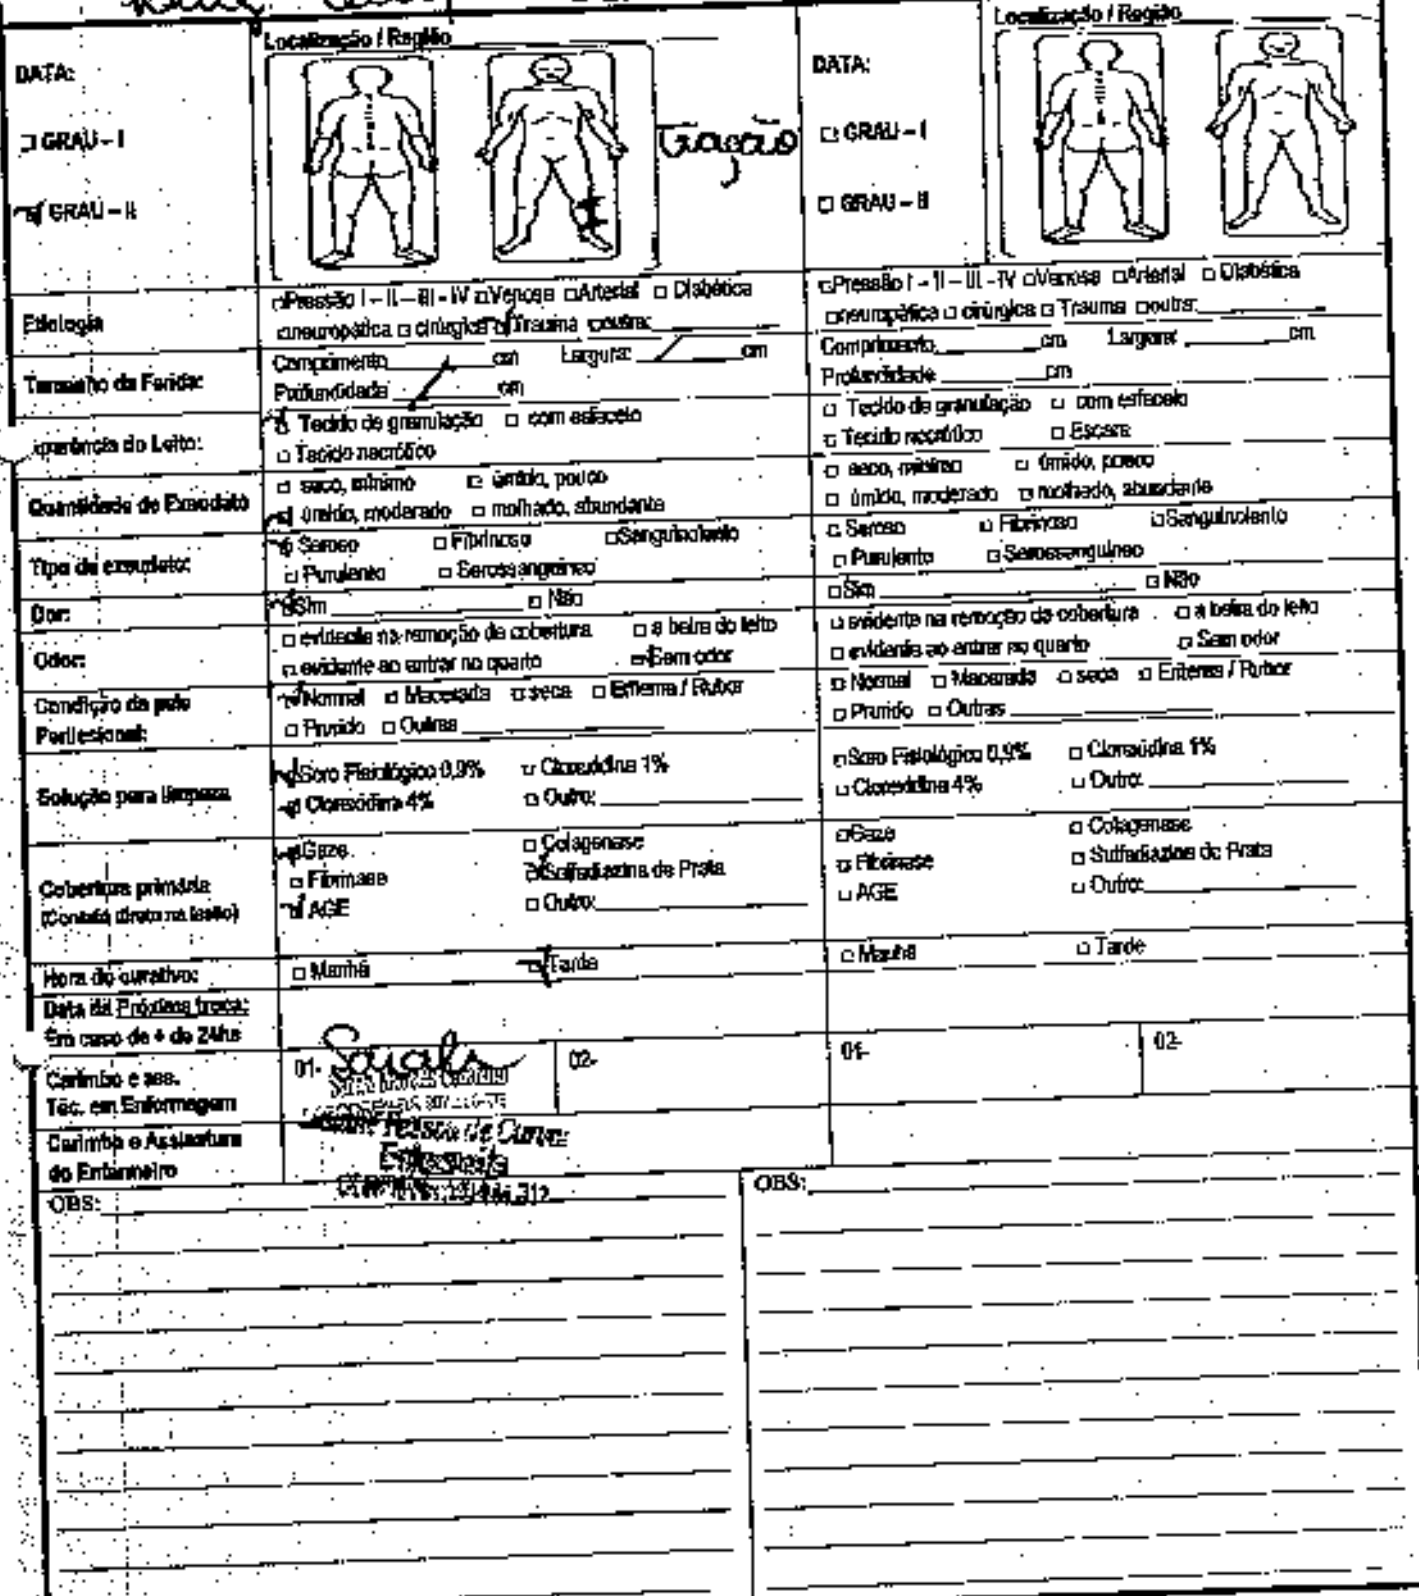 Localização / Região
DATA:
□ GRAU - I
☑ GRAU - II
Tração
Etiologia
□Pressão I - II - III - IV □Venosa □Arterial □ Diabética
□neuropática □ cirúrgica ☑Trauma □outra:
Tamanho da Ferida:
Comprimento cm Largura: cm
Profundidade cm
do Leito:
☑ Tecido de granulação □ com esfacelo
□ Tecido necrótico
Quantidade de Exsudato
□ seco, mínimo □ úmido, pouco
☑ úmido, moderado □ molhado, abundante
Tipo de exsudato:
☑ Seroso □ Fibrinoso □Sanguinolento
□ Purulento □ Serossanguineo
Dor:
☑Sim □ Não
Odor:
□ evidente na remoção da cobertura □ a beira do leito
□ evidente ao entrar no quarto ☑Sem odor
Condição da pele
Perilesional:
☑Normal □ Macerada □ seca □ Eritema / Rubor
□ Prurido □ Outras
Solução para limpeza
☑Soro Fisiológico 0,9% □ Clorexidina 1%
☑ Clorexidina 4% □ Outro:
Cobertura primária
(Contato direto na lesão)
☑Gaze □ Colagenase
□ Fibrinase ☑Sulfadiazina de Prata
☑ AGE □ Outro:
Hora do curativo:
□ Manhã ☑Tarde
Data da Próxima troca:
Em caso de + de 24hs
Carimbo e ass.
Téc. em Enfermagem
01- 02-
Carimbo e Assinatura
do Enfermeiro
OBS:
Localização / Região
DATA:
□ GRAU - I
□ GRAU - II
□Pressão I - II - III - IV □Venosa □Arterial □ Diabética
□neuropática □ cirúrgica □ Trauma □outra:
Comprimento cm Largura: cm
Profundidade cm
□ Tecido de granulação □ com esfacelo
□ Tecido necrótico □ Escara
□ seco, mínimo □ úmido, pouco
□ úmido, moderado □ molhado, abundante
□ Seroso □ Fibrinoso □Sanguinolento
□ Purulento □ Serossanguineo
□Sim □ Não
□ evidente na remoção da cobertura □ a beira do leito
□ evidente ao entrar no quarto □ Sem odor
□ Normal □ Macerada □ seca □ Eritema / Rubor
□ Prurido □ Outras
□Soro Fisiológico 0,9% □ Clorexidina 1%
□ Clorexidina 4% □ Outro:
□Gaze □ Colagenase
□ Fibrinase □ Sulfadiazina de Prata
□ AGE □ Outro:
□ Manhã □ Tarde
01- 02-
OBS: